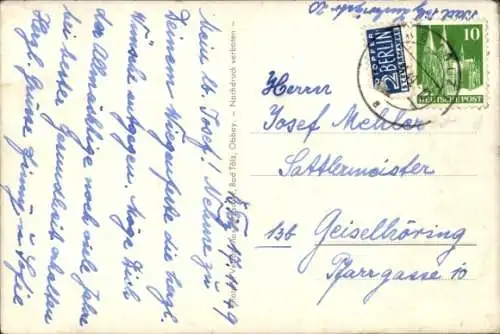 Tölz, 17.11.49
Mein lb. Josef! Nehme zu
Deinem Wiegenfeste die herzl.
Wünsche entgegen. Möge Dich
der Allmächtige noch viele Jahre
bei bester Gesundheit erhalten
Herzl. Grüße
u. Sofie
Bad Tölz, Obbay. – Nachdruck verboten –
NOTOPFER
2 BERLIN
STEUERMARKE
10
DEUTSCHE POST
Herrn
Josef Mehler
Sattlermeister
13b Geiselhöring
Pfarrgasse 10